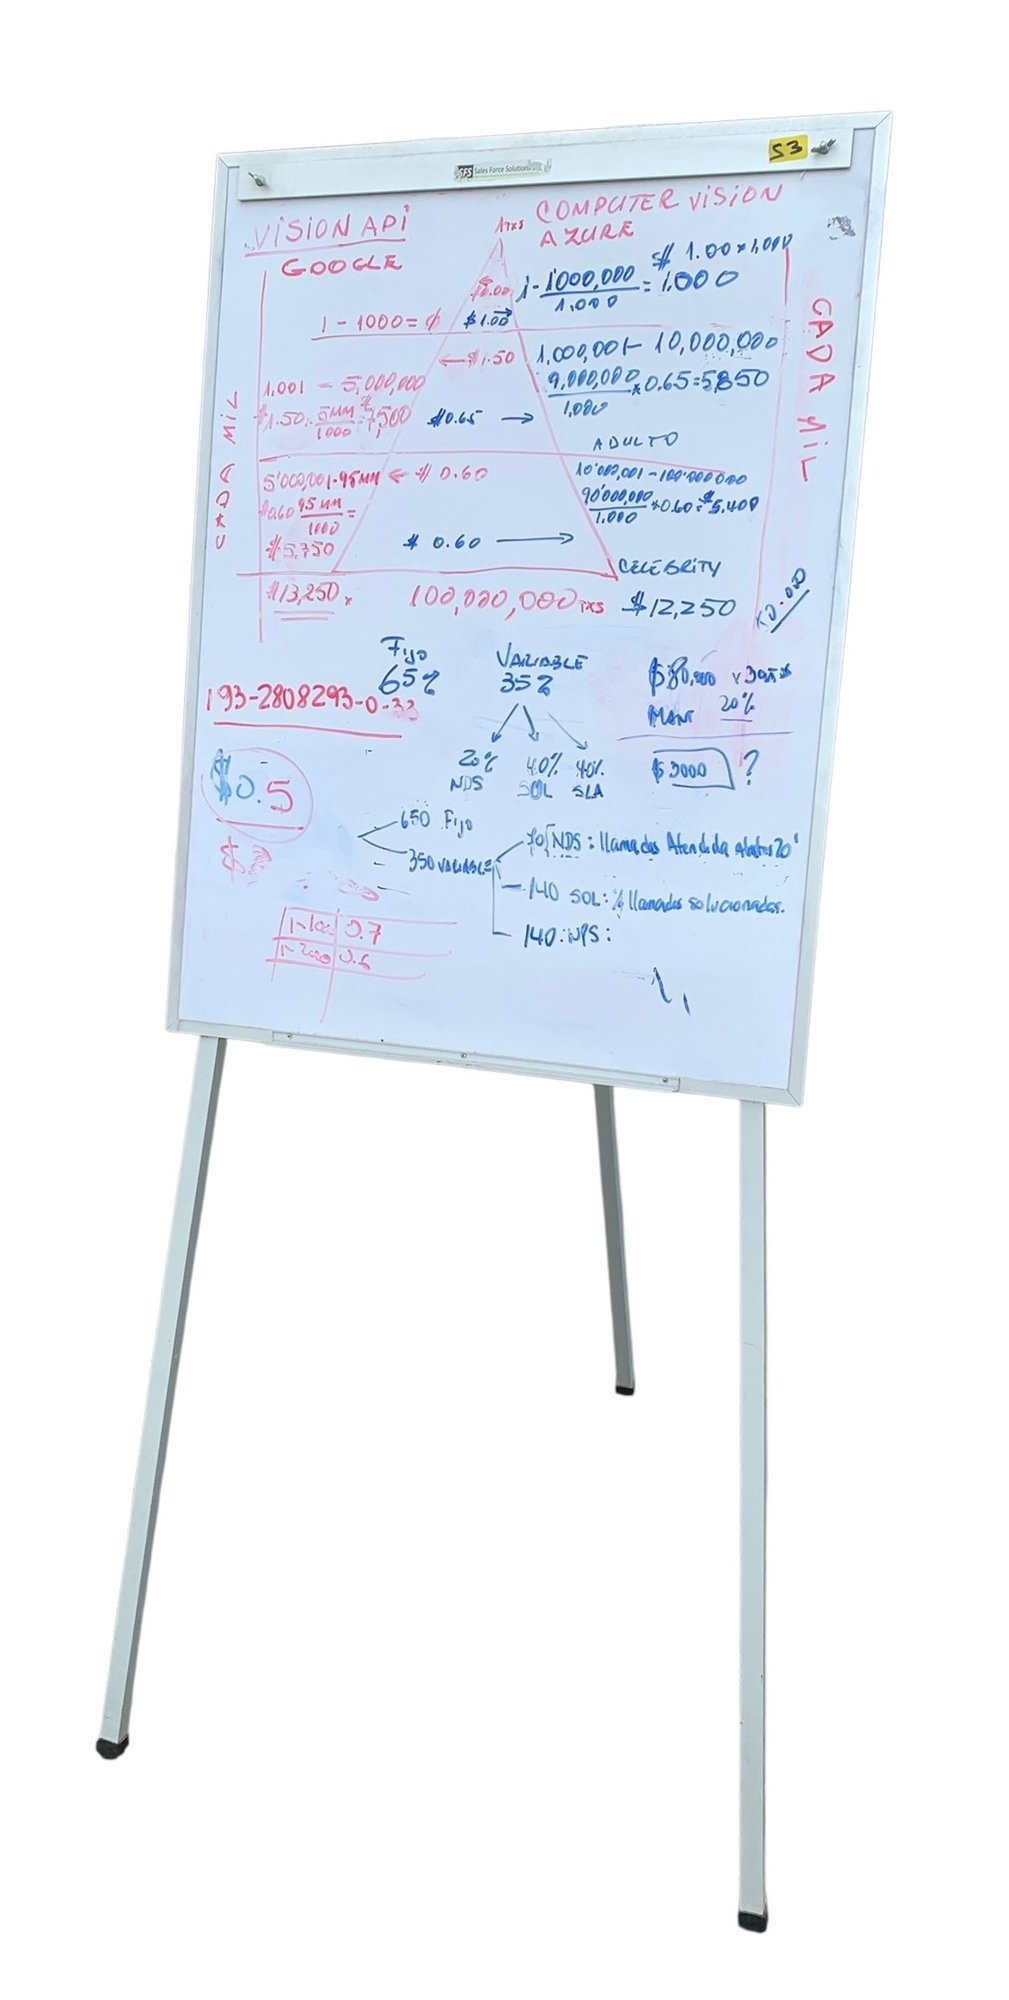 SFS Sales Force Solutions
53
VISION API
GOOGLE
1TXS
COMPUTER VISION
AZURE
$ 1.00 * 1,000
1 - 1'000,000 / 1.000 = 1.000
1 - 1000 = ∅
$1.00
← $1.50
1,000,001 - 10,000,000
9,000,000 / 1,000 * 0.65 = 5,850
1,001 - 5,000,000
$1.50 . 5MM / 1000 = $7,500
$0.65 →
ADULTO
5'000,001-95MM ← $ 0.60
10'000,001 - 100'000,000
90'000,000 / 1.000 * 0.60 = $5,400
$0.60 95 MM / 1000 =
$5.750
$ 0.60 →
CELEBRITY
$13,250
100,000,000 TXS
$12,250
CADA MIL
CADA MIL
Fijo
65%
VARIABLE
35%
193-2808293-0-33
$80,000
MANT 20%
$3000 ?
20% NDS
40% SOL
40% SLA
$0.5
650 Fijo
350 VARIABLE
70 NDS: llamadas Atendida
140 SOL: % llamadas solucionadas.
140: NPS:
0.7
0.6